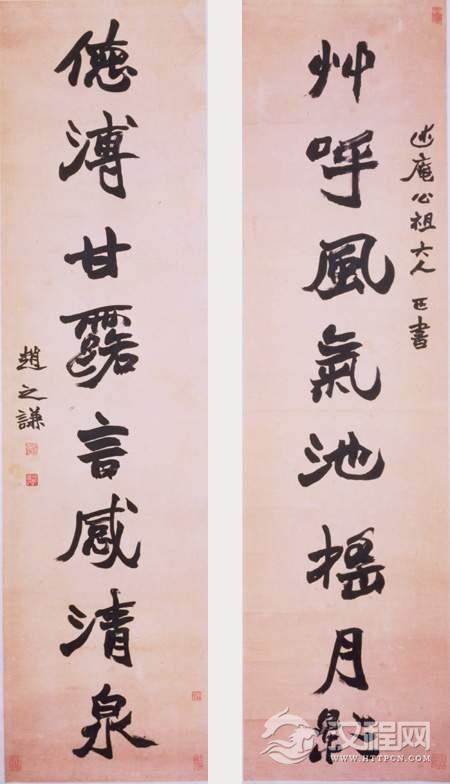 述庵公祖大人 正書
艸呼風氣池搖月
德溥甘露言感清泉
趙之謙
汉程网
HTTPCN.COM